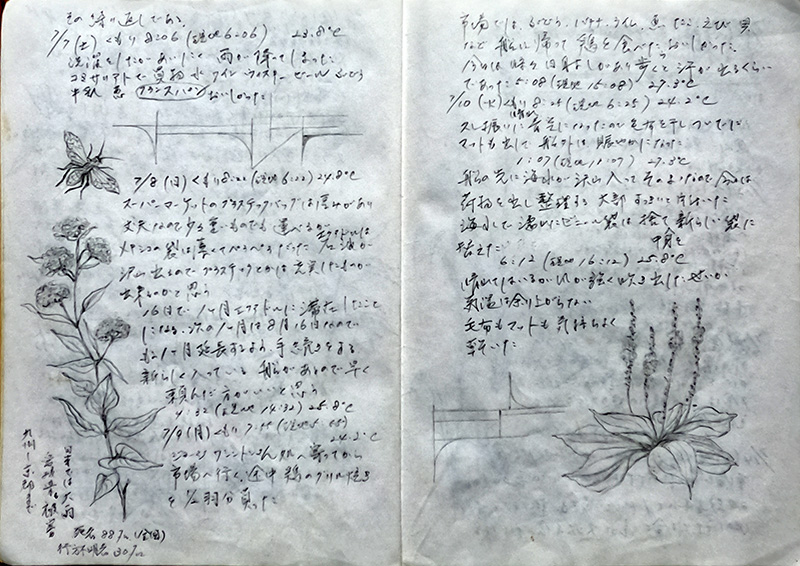 その繰り返しである。
7/7(土) くもり 8:06 (現地6:06) 23.8℃
洗濯をしたがあいにく雨が降ってしまった
コミサリアトで買物 水 ワイン ウィスキー ビール ぶどう
牛乳 フランスパン おいしかった
7/8(日) くもり 8:22 (現地6:22) 24.8℃
スーパーマーケットのプラスチックバッグは厚みがあり
丈夫なので少々重いものでも運べるが エクアドルは
メキシコの袋は薄くてぺらぺらだった 石油が
沢山出るのでプラスチックとかは充実したものが
出来るのかと思う
16日で1ヶ月エクアドルに滞在したこと
になる 次の1ヶ月は8月16日なので
もう1ヶ月延長するよう手続きをする
新らしく入っている船があるので早く
頼んだ方がいいと思う
4:32 (現地14:32) 25.8℃
7/9(月) くもり 7:45 (現地
24.2℃
処へ寄ってから
市場へ行く 途中 鶏のグリル焼き
を1/2羽分買った
日本では大雨
被害
九州
死者88人 (全国)
行方不明者 30人
市場では、ぶどう、バナナ、ライム、魚、たこ、えび、貝
など 船に帰って鶏を食べた おいしかった
今日は時々日射しがあり歩くと汗が出るくらい
であった 5:08 (現地15:08) 27.3℃
7/10(火) くもり 8:25 (現地6:25) 24.2℃
久し振りに青空になったので毛布を干し ついでに
マットも出して船外は賑やかになった
1:07 (現地11:07) 27.3℃
船の先に海水が沢山入ってそのままなので今日は
荷物を出し整理する 大部すっきりと片ずいた
海水で濡れたビニール袋は捨て新らしい袋に
中身を
詰えた
6:12 (現地16:12) 25.8℃
晴れてはいるが風が強く吹き出したせいか
気温は余り上がらない
毛布もマットも気持ちよく
乾いた